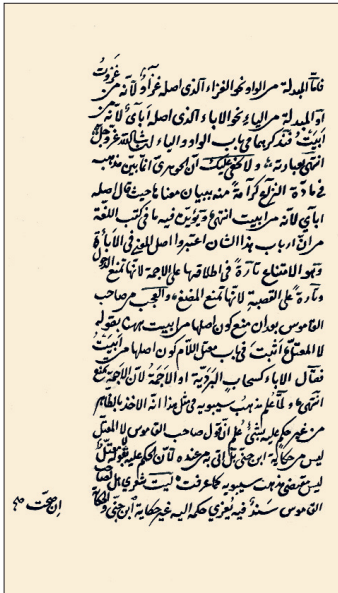 فأمّا المبدلة من الواو نحو الغزاء الذي اصله غزاوٌ لأنّه من غَزَوْتُ
أو المبدلة من الياء نحو الاباء الذي اصله أبايٌ لأنّه من
أبَيْتُ فنذكرهما في باب الواو والياء ان شاء الله عزّ وجلّ
انتهى بعبارته ولا يخفى عليك أنّ الجوهري انّما بيّن مذهبه
في مادة منه ببيان معناها حيث قال اصله
اباي لأنه من ابيت انتهى ويؤيّده ما في كتب اللّغة
من انّ ارباب هذا الشان اعتبروا اصل المعنى في الأباءة
وهو الامتناع تارةً في اطلاقها على الاجمة لانّها تمنع
وتارةً على القصبة لانّها تمنع والعجب من صاحب
القاموس بعد ان منع كون اصلها من ابيت ههنا بقوله
لا المعتلّ اثبت في باب معتلّ اللّام كون اصلها من ابَيْتُ
فقال الاباء كسحاب البَرديّة او الأجَمَة لأنّ الأجمة تمنع
انتهى ولمّا علم مذهب سيبويه في مثل هذا انّه الاخذ بالظاهر
من غير حكم عليه بشيءٍ عُلم انّ قول صاحب القاموس لا المعتلّ
ليس من حكاية ابن جنّي بل اتى به من عنده لأنّ الحكم عليه بقوله
ليس مقتضى مذهب سيبويه كما عرفت ليت شعري هل لصاحب
القاموس سَنَدٌ فيه يُعزي حكمه اليه غير حكاية ابن جنّي والحكاية
ان صحّت